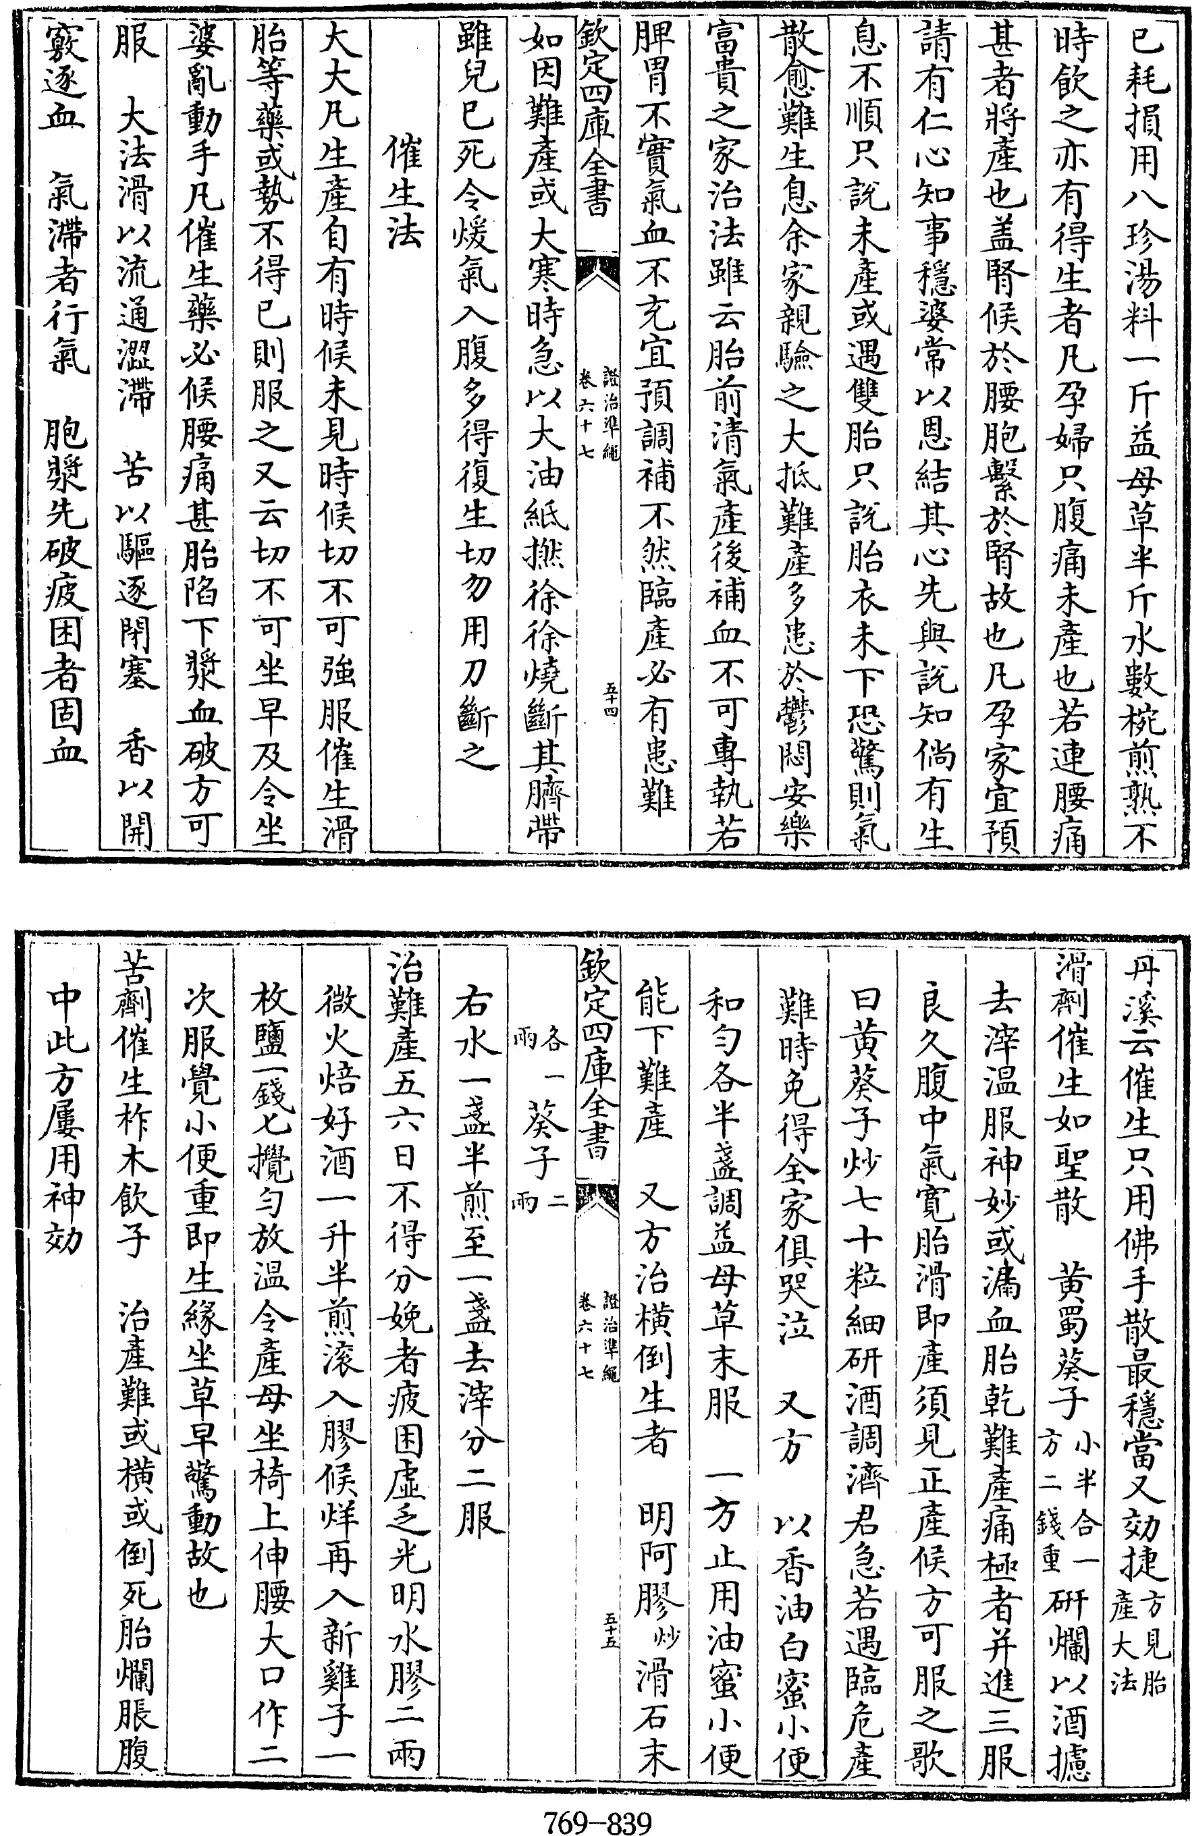 已耗損用八珍湯料一斤益母草半斤水數椀煎熟不
時飲之亦有得生者凡孕婦只腹痛未產也若連腰痛
甚者將產也盖腎候於腰胞繫於腎故也凡孕家宜預
請有仁心知事穩婆常以恩結其心先與說知倘有生
息不順只說未產或遇雙胎只説胎衣未下恐驚則氣
散愈難生息余家親驗之大抵難產多患於鬱悶安樂
富貴之家治法雖云胎前清氣產後補血不可專執若
脾胃不實氣血不充宜預調補不然臨產必有患難
欽定四庫全書
證治準繩
卷六十七
五十四
如因難產或大寒時急以大油紙撚徐徐燒斷其臍帶
雖兒已死令煖氣入腹多得復生切勿用刀斷之
催生法
大大凡生產自有時候未見時候切不可強服催生滑
胎等藥或勢不得已則服之又云切不可坐早及令坐
婆亂動手凡催生藥必候腰痛甚胎陷下漿血破方可
服　大法滑以流通澀滯　苦以驅逐閉塞　香以開
竅逐血　氣滯者行氣　胞漿先破疲困者固血
丹溪云催生只用佛手散最穩當又効捷方見胎產大法
滑劑催生如聖散　黄蜀葵子小半合一方二錢重研爛以酒攄
去滓温服神妙或漏血胎乾難產痛極者并進三服
良久腹中氣寛胎滑即產須見正產候方可服之歌
曰黄葵子炒七十粒細研酒調濟君急若遇臨危產
難時免得全家俱哭泣　又方　以香油白蜜小便
和勻各半盞調益母草末服　一方止用油蜜小便
能下難產　又方治橫倒生者　明阿膠炒滑石末
欽定四庫全書
證治準繩
卷六十七
五十五
各一兩　葵子二兩
右水一盞半煎至一盞去滓分二服
治難產五六日不得分娩者疲困虛乏光明水膠二兩
微火焙好酒一升半煎滚入膠候烊再入新雞子一
枚鹽一錢七攪勻放温令產母坐椅上伸腰大口作二
次服覺小便重即生緣坐草早驚動故也
苦劑催生柞木飲子　治產難或橫或倒死胎爛脹腹
中此方屢用神効
769-839